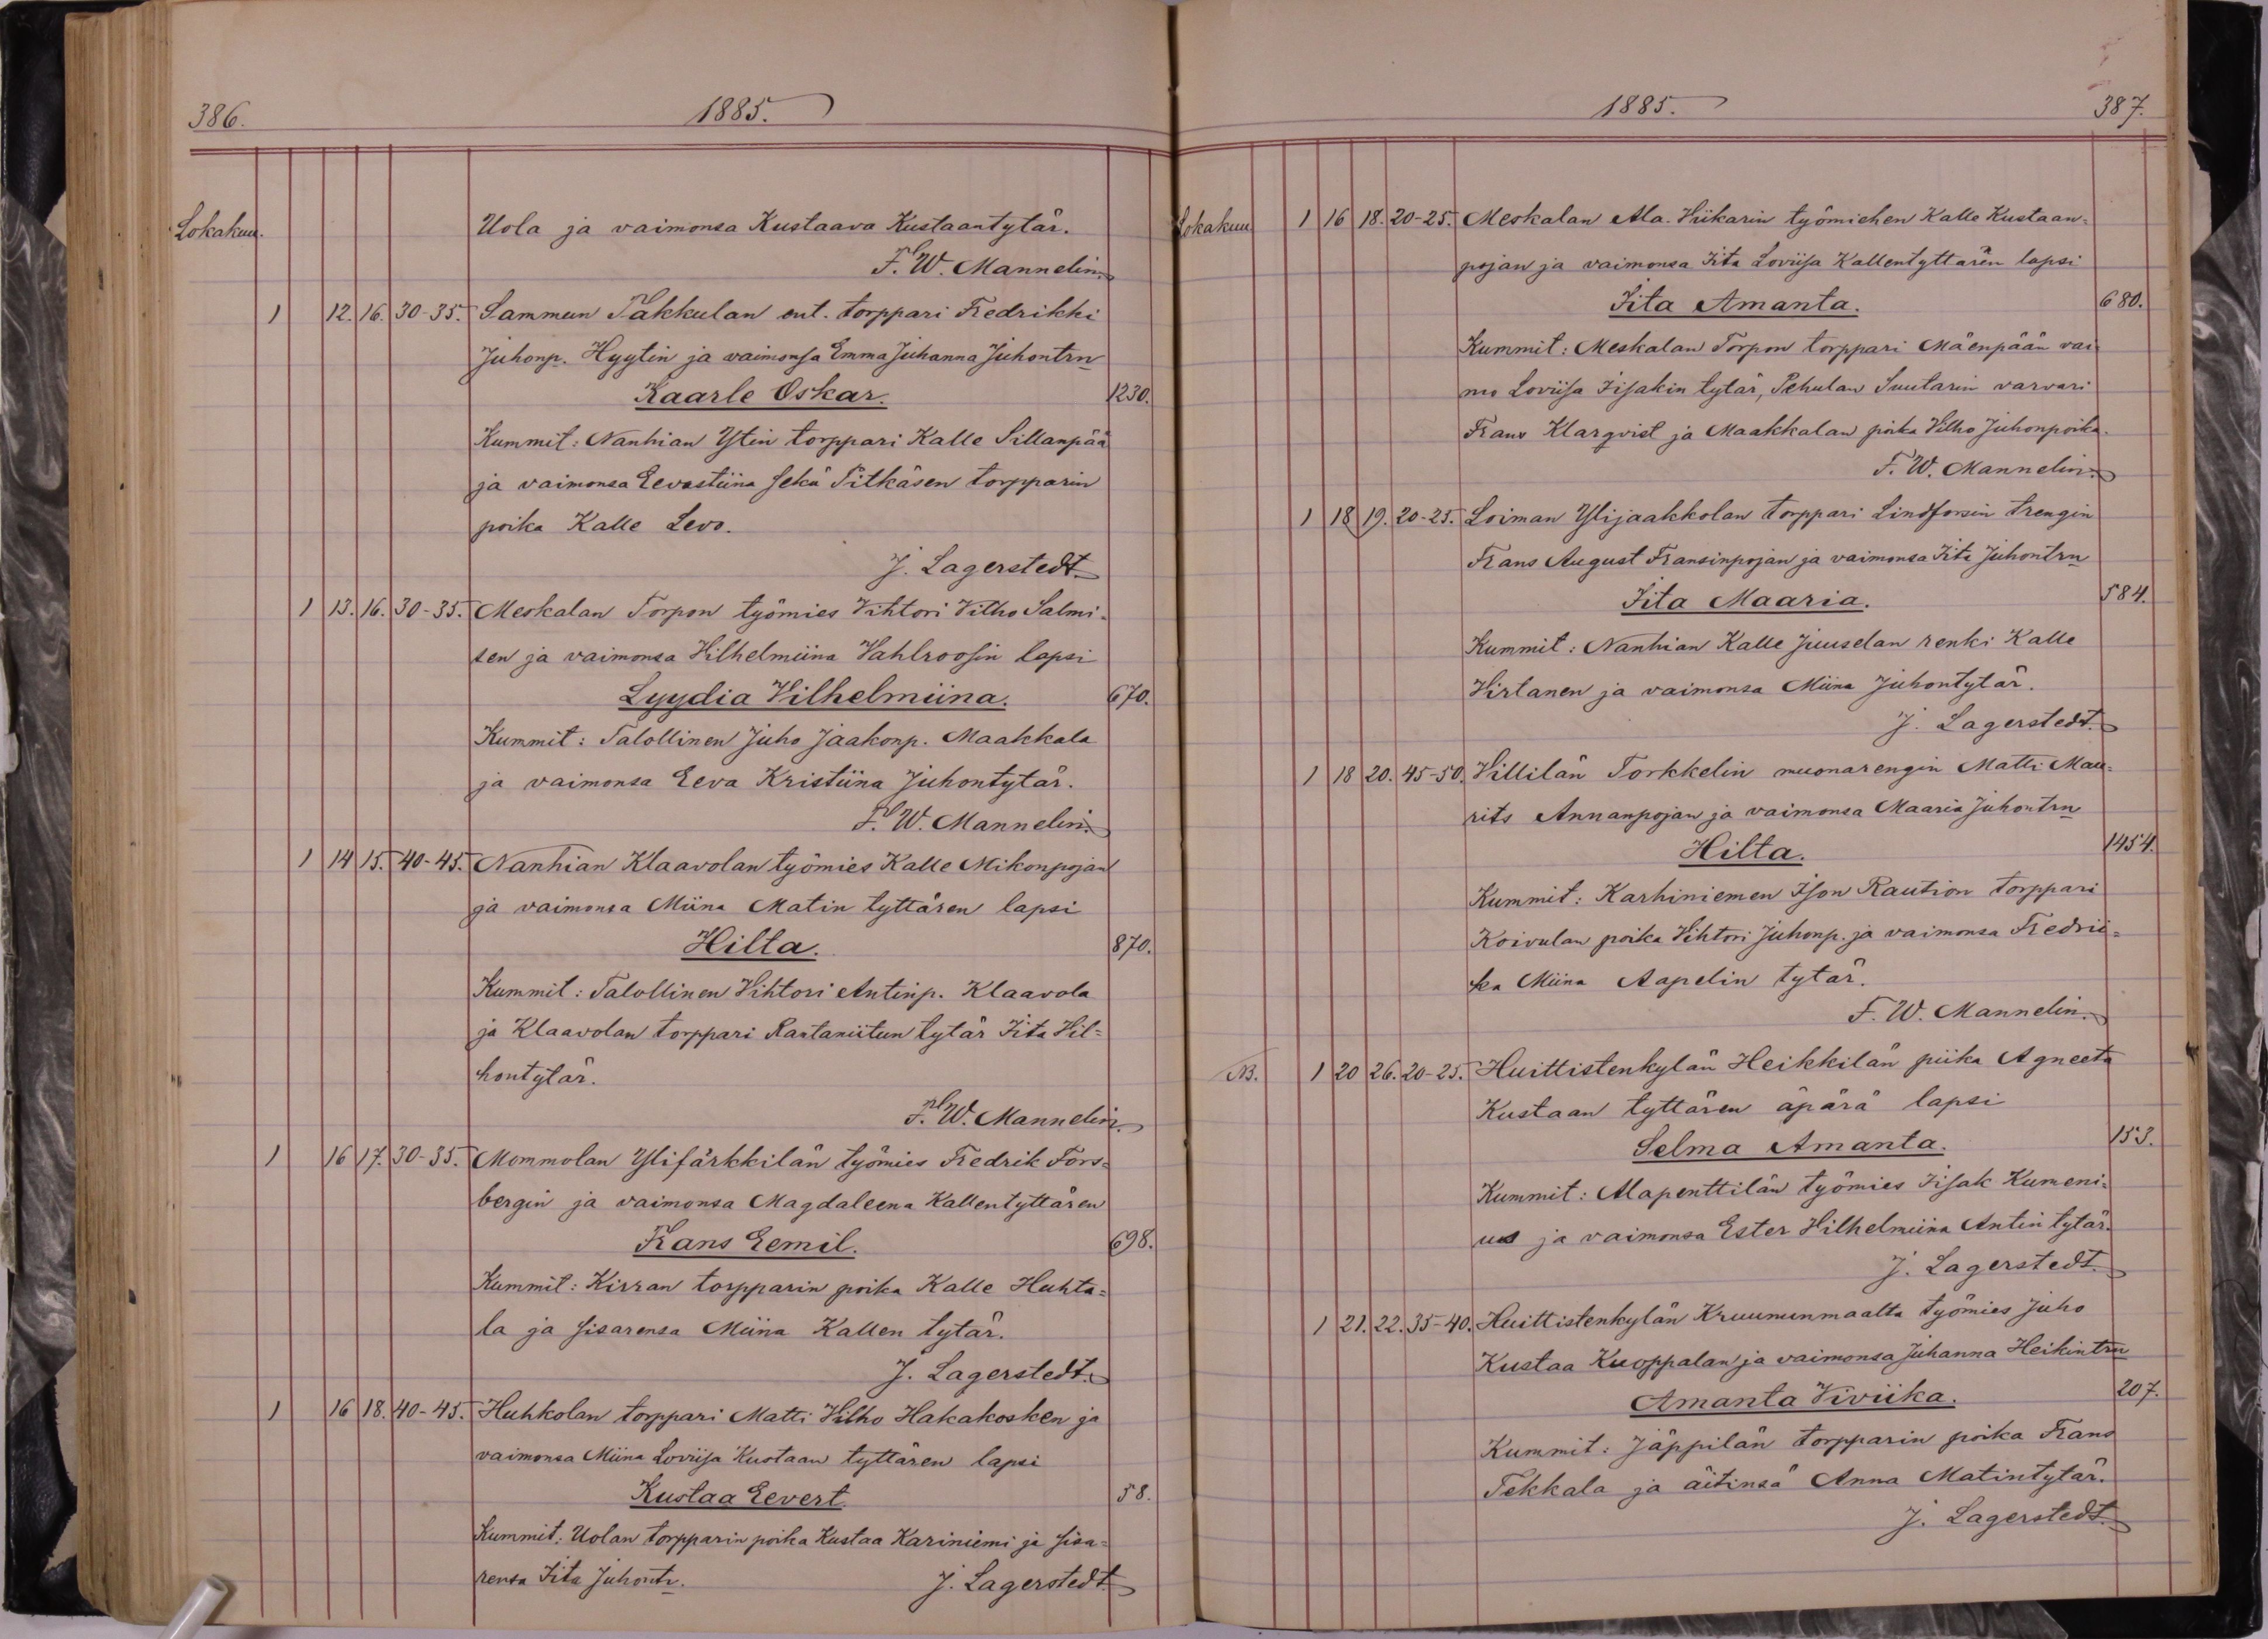 386.
1885.
Lokakuu.
Uola ja vaimonsa Kustaava Kustaantytär.
F. W. Mannelin.
1 12. 16. 30-35. Sammun Takkulan ent. torppari Fredrikki
Juhonp. Hyytin ja vaimonsa Emma Juhanna Juhontrn
Kaarle Oskar. 1230.
Kummit: Nanhian Ytin torppari Kalle Sillanpää
ja vaimonsa Eevastiina sekä Pitkäsen torpparin
poika Kalle Levo.
J. Lagerstedt.
1 13. 16. 30-35. Meskalan Torpon työmies Vihtori Vilho Salmi-
sen ja vaimonsa Vilhelmiina Vahlroosin lapsi
Lyydia Vilhelmiina. 670.
Kummit: Talollinen Juho Jaakonp. Maakkala
ja vaimonsa Eeva Kristiina Juhontytär.
F. W. Mannelin.
1 14 15. 40-45. Nanhian Klaavolan työmies Kalle Mikonpojan
ja vaimonsa Miina Matin tyttären lapsi
Hilta. 870.
Kummit: Talollinen Vihtori Antinp. Klaavola
ja Klaavolan torppari Rantaniitun tytär Iita Vil=
hontytär.
F. W. Mannelin.
1 16 17. 30-35. Mommolan Ylifärkkilän työmies Fredrik Fors=
bergin ja vaimonsa Magdaleena Kallentyttären
Frans Eemil. 698.
Kummit: Kirran torpparin poika Kalle Huhta=
la ja sisarensa Miina Kallen tytär.
J. Lagerstedt.
1 16 18. 40-45. Huhkolan torppari Matti Vilho Hakakosken ja
vaimonsa Miina Loviisa Kustaan tyttären lapsi
Kustaa Eevert 58.
Kummit: Uolan torpparin poika Kustaa Kariniemi ja sisa=
rensa Iita Juhontr. J. Lagerstedt.
1885.
387.
Lokakuu 1 16 18. 20-25. Meskalan Ala-Hiikarin työmiehen Kalle Kustaan=
pojan ja vaimonsa Iita Loviisa Kallentyttären lapsi
Iita Amanta. 680.
Kummit: Meskalan Torpon torppari Mäenpään vai-
mo Loviisa Iisakin tytär, Pehulan Suutarin varvari
Frans Klarqvist ja Maakkalan poika Vilho Juhonpoika.
F. W. Mannelin.
1 18 19. 20-25. Loiman Ylijaakkolan torppari Lindforsin trengin
Frans August Fransinpojan ja vaimonsa Iita Juhontrn
Iita Maaria. 584.
Kummit: Nanhian Kalle Juuselan renki Kalle
Virtanen ja vaimonsa Miina Juhontytär.
J. Lagerstedt.
1 18 20. 45-50. Villilän Torkkelin muonarengin Matti Mau=
rits Annanpojan ja vaimonsa Maaria Juhontrn
Hilta. 1454.
Kummit: Karhiniemen Ison Raution torppari
Koivulan poika Vihtori Juhonp. ja vaimonsa Fredrii=
ka Miina Aapelin tytär.
F. W. Mannelin.
NB. 1 20 26. 20-25. Huittistenkylän Heikkilän piika Agneeta
Kustaan tyttären äpärä lapsi
Selma Amanta. 153.
Kummit: Alapenttilän työmies Iisak Kumeni=
us ja vaimonsa Ester Vilhelmiina Antin tytär.
J. Lagerstedt.
1 21. 22. 35-40. Huittistenkylän Kruununmaalta työmies Juho
Kustaa Kuoppalan ja vaimonsa Juhanna Heikintrn
Amanta Viviika. 207.
Kummit: Jäppilän torpparin poika Frans
Tekkala ja äitinsä Anna Matintytär.
J. Lagerstedt.